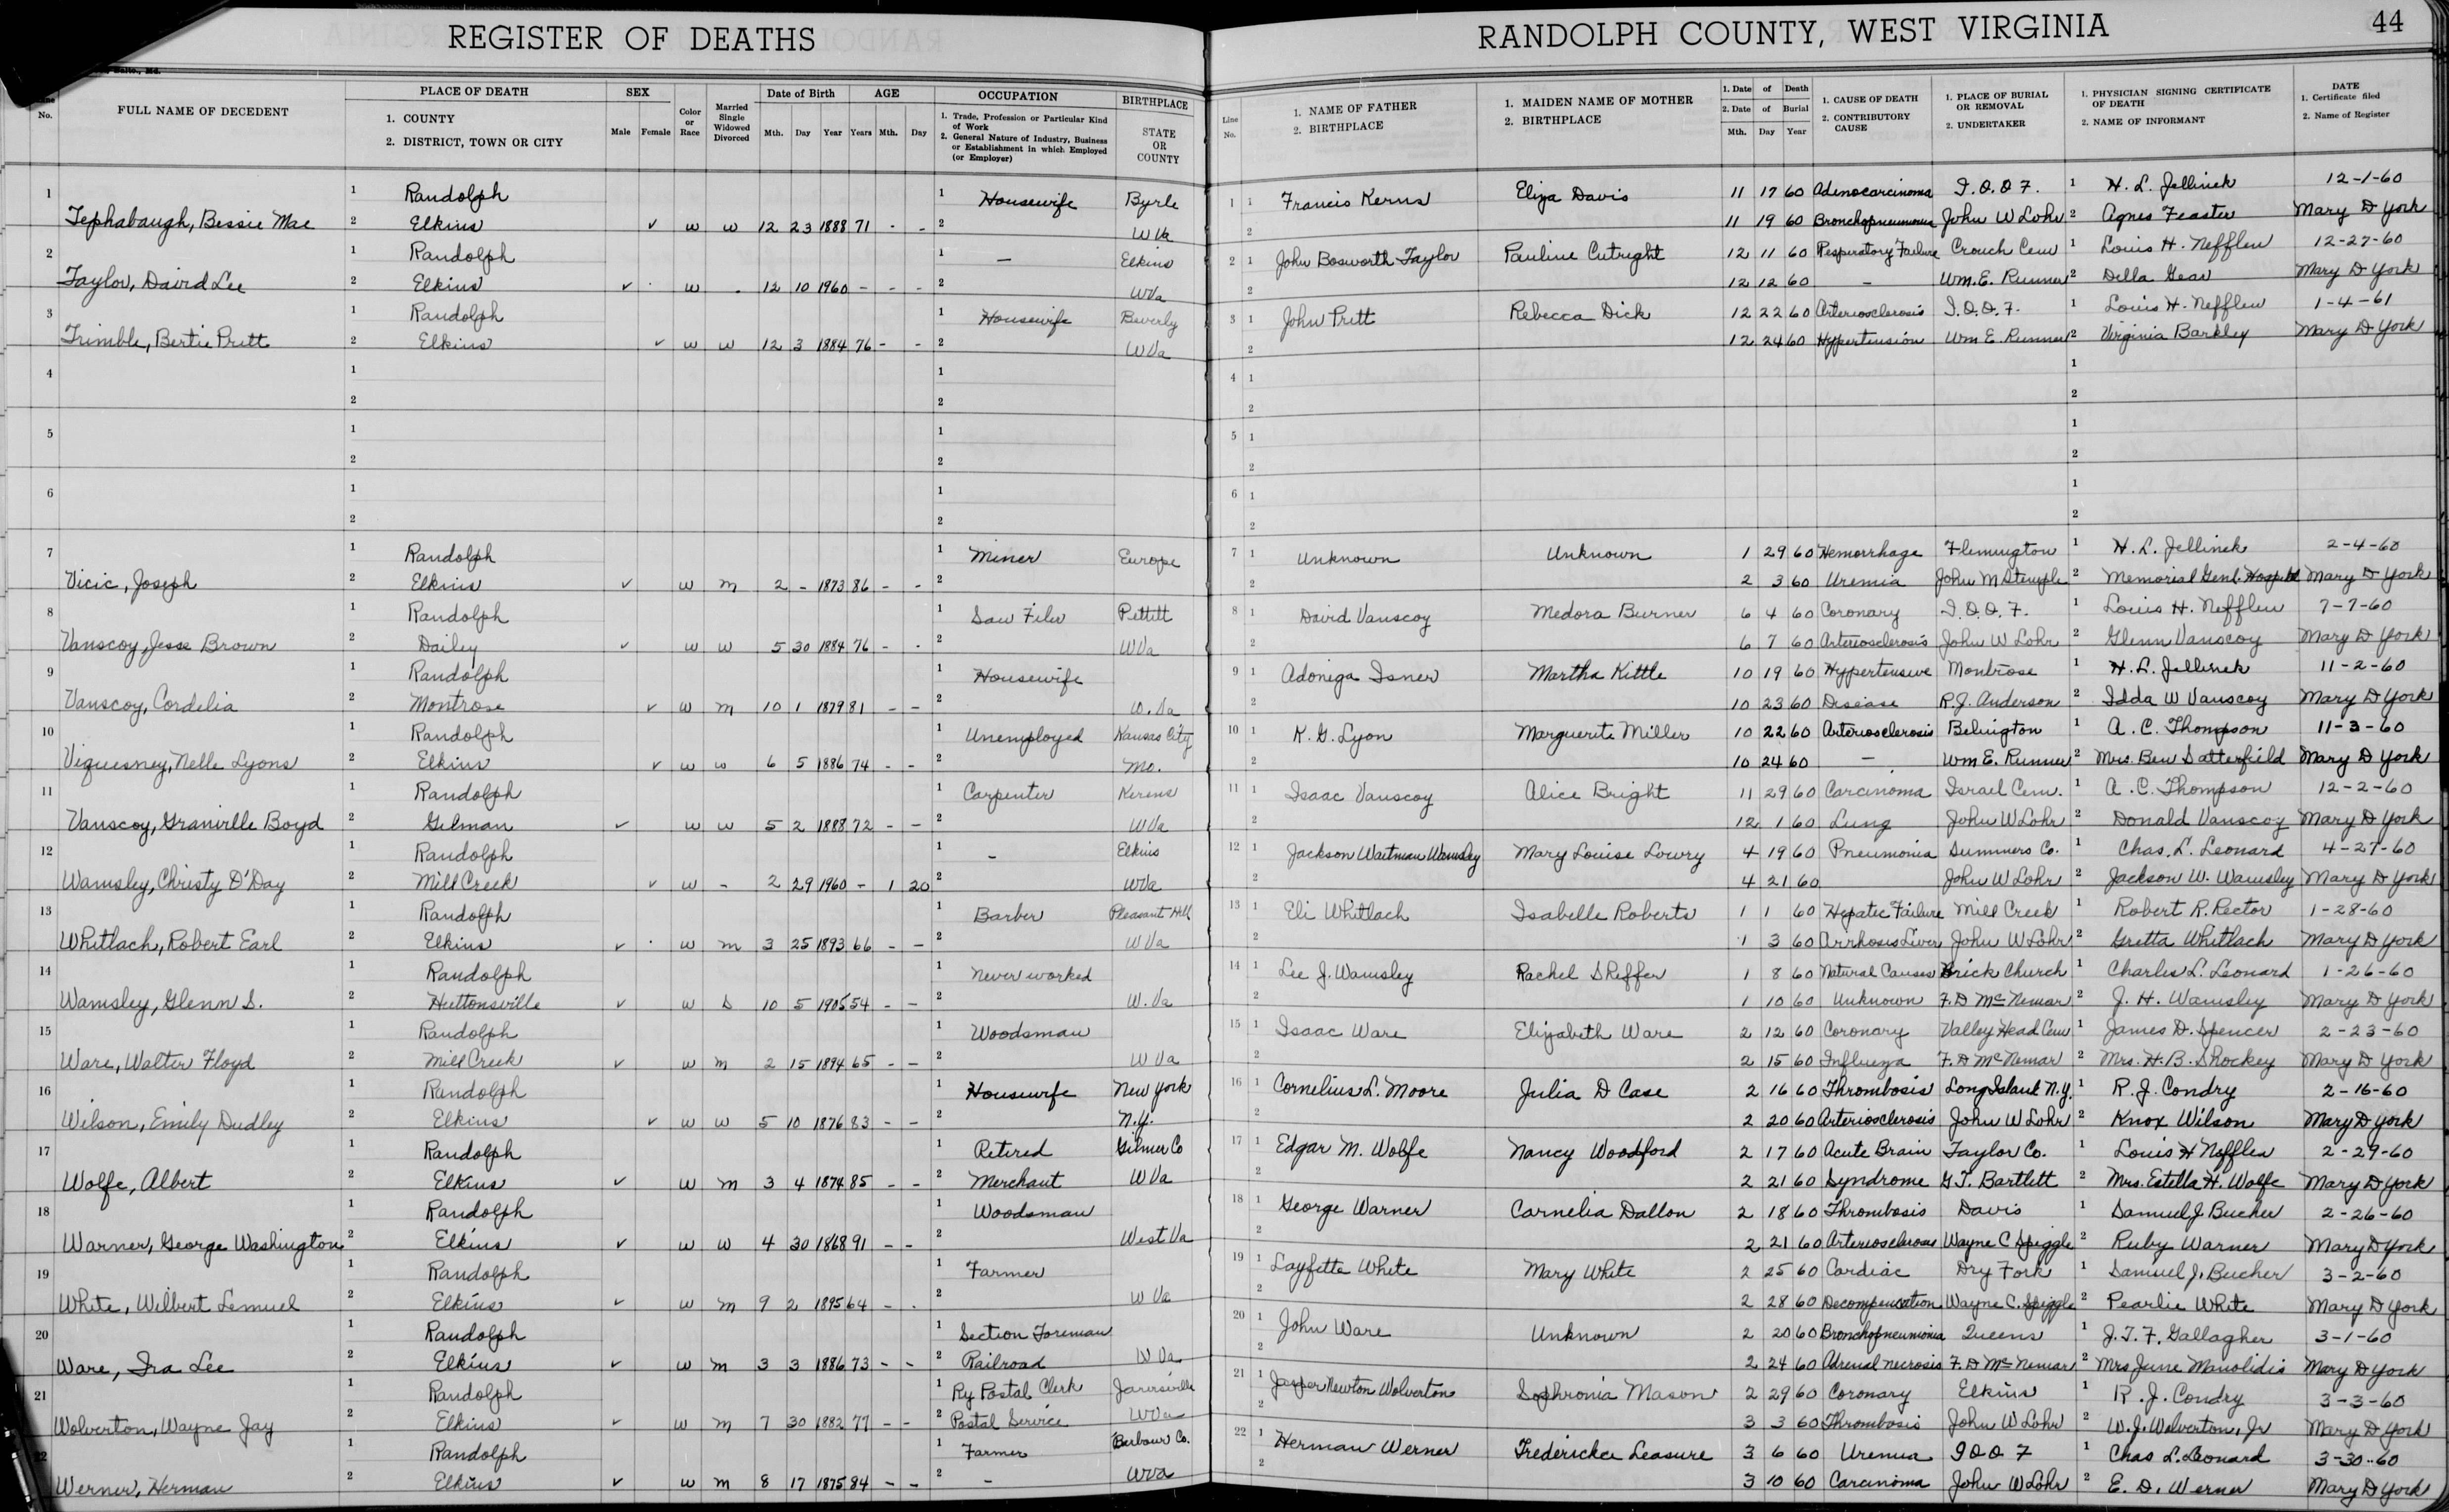 REGISTER OF DEATHS
RANDOLPH COUNTY, WEST VIRGINIA 44
Line No. | FULL NAME OF DECEDENT | PLACE OF DEATH 1. COUNTY 2. DISTRICT, TOWN OR CITY | SEX Male Female | Color or Race | Married Single Widowed Divorced | Date of Birth Mth. Day Year | AGE Years Mth. Day | OCCUPATION 1. Trade, Profession or Particular Kind of Work 2. General Nature of Industry, Business or Establishment in which Employed (or Employer) | BIRTHPLACE STATE OR COUNTY
Line No. | 1. NAME OF FATHER 2. BIRTHPLACE | 1. MAIDEN NAME OF MOTHER 2. BIRTHPLACE | 1. Date of Death 2. Date of Burial Mth. Day Year | 1. CAUSE OF DEATH 2. CONTRIBUTORY CAUSE | 1. PLACE OF BURIAL OR REMOVAL 2. UNDERTAKER | 1. PHYSICIAN SIGNING CERTIFICATE OF DEATH 2. NAME OF INFORMANT | DATE 1. Certificate filed 2. Name of Register
1 1 Randolph 1 Housewife Byrle 1 1 Francis Kerns Eliza Davis 11 17 60 Adenocarcinoma I.O.O F. 1 H. L. Jellinek 12-1-60
Tephabaugh, Bessie Mae 2 Elkins ✓ w w 12 23 1888 71 - - 2 W Va 2 11 19 60 Bronchopneumonia John W Lohr 2 Agnes Feaster Mary D York
2 1 Randolph 1 — Elkins 2 1 John Bosworth Taylor Pauline Cutright 12 11 60 Respiratory Failure Crouch Cem 1 Louis H. Nefflen 12-27-60
Taylor, David Lee 2 Elkins ✓ w . 12 10 1960 - - - 2 WVa 2 12 12 60 - Wm. E. Runner 2 Della Gear Mary D York
3 1 Randolph 1 Housewife Beverly 3 1 John Pritt Rebecca Dick 12 22 60 Arteriosclerosis I.O.O.F. 1 Louis H. Nefflen 1-4-61
Trimble, Bertie Pritt 2 Elkins ✓ w w 12 3 1884 76 - - 2 WVa 2 12 24 60 Hypertension Wm E. Runner 2 Virginia Barkley Mary D York
4 1 1 4 1 1
2 2 2 2
5 1 1 5 1 1
2 2 2 2
6 1 1 6 1 1
2 2 2 2
7 1 Randolph 1 Miner Europe 7 1 Unknown Unknown 1 29 60 Hemorrhage Flemington 1 H. L. Jellinek 2-4-60
Vicic, Joseph 2 Elkins ✓ w m 2 - 1873 86 - - 2 2 2 3 60 Uremia John M Stemple 2 Memorial Genl. Hospital Mary D York
8 1 Randolph 1 Saw Filer Pettitt 8 1 David Vanscoy Medora Burner 6 4 60 Coronary I.O.O.F. 1 Louis H. Nefflen 7-7-60
Vanscoy, Jesse Brown 2 Dailey ✓ w w 5 30 1884 76 - - 2 WVa 2 6 7 60 Arteriosclerosis John W Lohr 2 Glenn Vanscoy Mary D York
9 1 Randolph 1 Housewife 9 1 Adoniga Isner Martha Kittle 10 19 60 Hypertensive Montrose 1 H. L. Jellinek 11-2-60
Vanscoy, Cordelia 2 Montrose ✓ w m 10 1 1879 81 - - 2 W. Va 2 10 23 60 Disease R.J. Anderson 2 Idda W Vanscoy Mary D York
10 1 Randolph 1 Unemployed Kansas City 10 1 K. G. Lyon Marguerite Miller 10 22 60 Arteriosclerosis Belington 1 A. C. Thompson 11-3-60
Viquesney, Nelle Lyons 2 Elkins ✓ w w 6 5 1886 74 - - 2 Mo. 2 10 24 60 — Wm E. Runner 2 Mrs. Ben Satterfield Mary D York
11 1 Randolph 1 Carpenter Kerens 11 1 Isaac Vanscoy Alice Bright 11 29 60 Carcinoma Israel Cem. 1 A. C. Thompson 12-2-60
Vanscoy, Granville Boyd 2 Gilman ✓ w w 5 2 1888 72 - - 2 WVa 2 12 1 60 Lung John W Lohr 2 Donald Vanscoy Mary D York
12 1 Randolph 1 - Elkins 12 1 Jackson Waitman Wamsley Mary Louise Lowry 4 19 60 Pneumonia Summers Co. 1 Chas. L. Leonard 4-27-60
Wamsley, Christy D'Day 2 Mill Creek ✓ w - 2 29 1960 - 1 20 2 WVa 2 4 21 60 John W Lohr 2 Jackson W. Wamsley Mary D York
13 1 Randolph 1 Barber Pleasant Hill 13 1 Eli Whitlach Isabelle Roberts 1 1 60 Hepatic Failure Mill Creek 1 Robert R. Rector 1-28-60
Whitlach, Robert Earl 2 Elkins ✓ w m 3 25 1893 66 - - 2 W Va 2 1 3 60 Cirrhosis Liver John W Lohr 2 Gretta Whitlach Mary D York
14 1 Randolph 1 Never worked 14 1 Lee J. Wamsley Rachel Sheffer 1 8 60 Natural Causes Brick Church 1 Charles L. Leonard 1-26-60
Wamsley, Glenn S. 2 Huttonsville ✓ w D 10 5 1905 54 - - 2 W. Va 2 1 10 60 Unknown F. D McNemar 2 J. H. Wamsley Mary D York
15 1 Randolph 1 Woodsman 15 1 Isaac Ware Elizabeth Ware 2 12 60 Coronary Valley Head Cem 1 James D. Spencer 2-23-60
Ware, Walter Floyd 2 Mill Creek ✓ w m 2 15 1894 65 - - 2 W Va 2 2 15 60 Influenza F. D McNemar 2 Mrs. H. B. Shockey Mary D York
16 1 Randolph 1 Housewife New York 16 1 Cornelius L. Moore Julia D Case 2 16 60 Thrombosis Long Island N.Y. 1 R. J. Condry 2-16-60
Wilson, Emily Dudley 2 Elkins ✓ w w 5 10 1876 83 - - 2 N.Y. 2 2 20 60 Arteriosclerosis John W Lohr 2 Knox Wilson Mary D York
17 1 Randolph 1 Retired Gilmer Co 17 1 Edgar M. Wolfe Nancy Woodford 2 17 60 Acute Brain Taylor Co. 1 Louis H Nefflen 2-29-60
Wolfe, Albert 2 Elkins ✓ w m 3 4 1874 85 - - 2 Merchant W Va 2 2 21 60 Syndrome G T. Bartlett 2 Mrs. Estella H. Wolfe Mary D York
18 1 Randolph 1 Woodsman 18 1 George Warner Carnelia Dallon 2 18 60 Thrombosis Davis 1 Samuel J Bucher 2-26-60
Warner, George Washington 2 Elkins ✓ w w 4 30 1868 91 - - 2 West Va 2 2 21 60 Arteriosclerosis Wayne C Spiggle 2 Ruby Warner Mary D York
19 1 Randolph 1 Farmer 19 1 Layfette White Mary White 2 25 60 Cardiac Dry Fork 1 Samuel J. Bucher 3-2-60
White, Wilbert Lemuel 2 Elkins ✓ w m 9 2 1895 64 - - 2 W Va 2 2 28 60 Decompensation Wayne C. Spiggle 2 Pearlie White Mary D York
20 1 Randolph 1 Section Foreman 20 1 John Ware Unknown 2 20 60 Bronchopneumonia Queens 1 J. T. F. Gallagher 3-1-60
Ware, Ira Lee 2 Elkins ✓ w m 3 3 1886 73 - - 2 Railroad W Va 2 2 24 60 Adrenal necrosis F. D McNemar 2 Mrs June Manolidis Mary D York
21 1 Randolph 1 Ry Postal Clerk 21 1 Jasper Newton Wolverton Sophronia Mason 2 29 60 Coronary Elkins 1 R. J. Condry 3-3-60
Wolverton, Wayne Jay 2 Elkins ✓ w m 7 30 1882 77 - - 2 Postal Service WVa 2 3 3 60 Thrombosis John W Lohr 2 W. J. Wolverton, Jr Mary D York
22 1 Randolph 1 Farmer Barbour Co. 22 1 Herman Werner Fredericka Leasure 3 6 60 Uremia I O O F 1 Chas L. Leonard 3-30-60
Werner, Herman 2 Elkins ✓ w m 8 17 1875 84 - - 2 - WVa 2 3 10 60 Carcinoma John W Lohr 2 E. D. Werner Mary D York